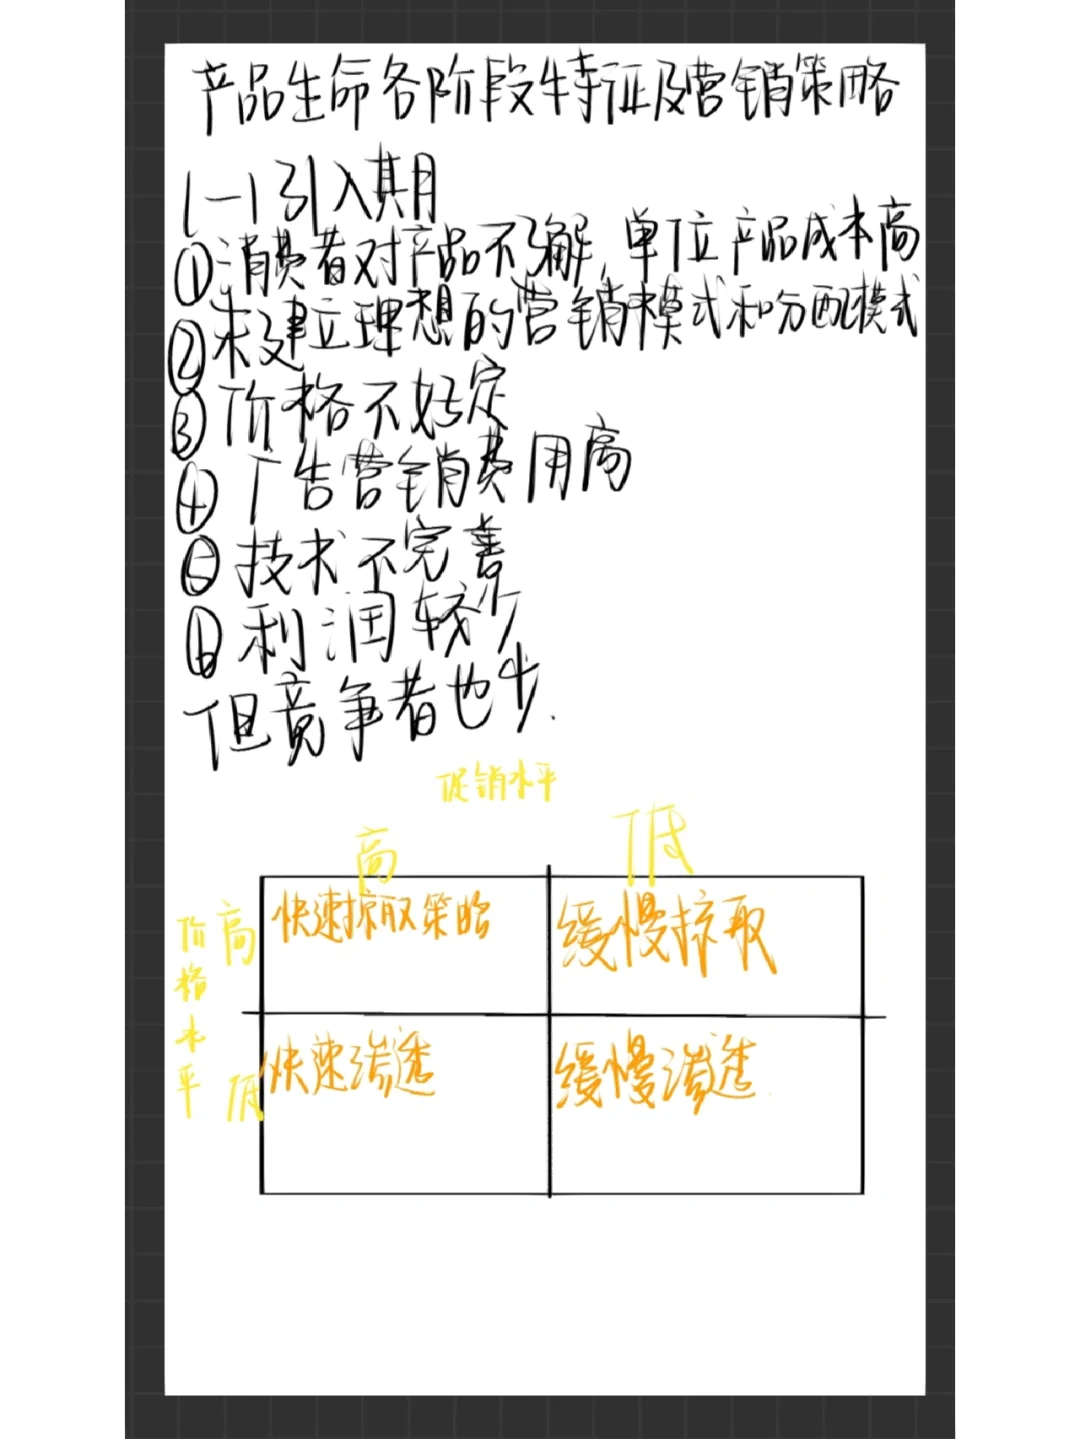 产品生命各阶段特征及营销策略
1-1引入期
①消费者对产品不了解,单位产品成本高
②未建立理想的营销模式和分配模式
③价格不好定
④广告营销费用高
⑤技术不完善
⑥利润较少
但竞争者也少.
促销水平
高 低
价格水平
高 快速掠取策略 缓慢掠取
低 快速渗透 缓慢渗透